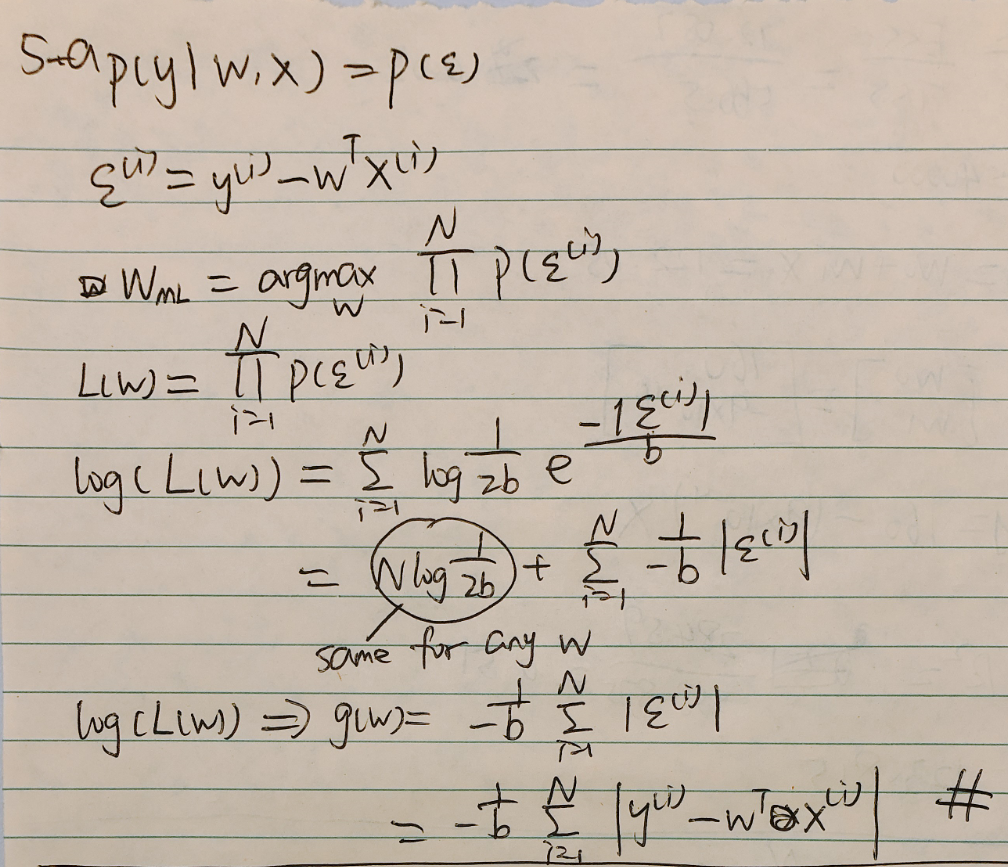 5-a p(y|w,x) = p(ε)
ε^(i) = y^(i) - w^T x^(i)
W_ML = argmax_w ∏_{i=1}^{N} p(ε^(i))
L(w) = ∏_{i=1}^{N} p(ε^(i))
log(L(w)) = Σ_{i=1}^{N} log 1/2b e^{-|ε^(i)|/b}
= N log 1/2b + Σ_{i=1}^{N} -1/b |ε^(i)|
same for any w
log(L(w)) ⇒ g(w) = -1/b Σ_{i=1}^{N} |ε^(i)|
= -1/b Σ_{i=1}^{N} |y^(i) - w^T x^(i)| #